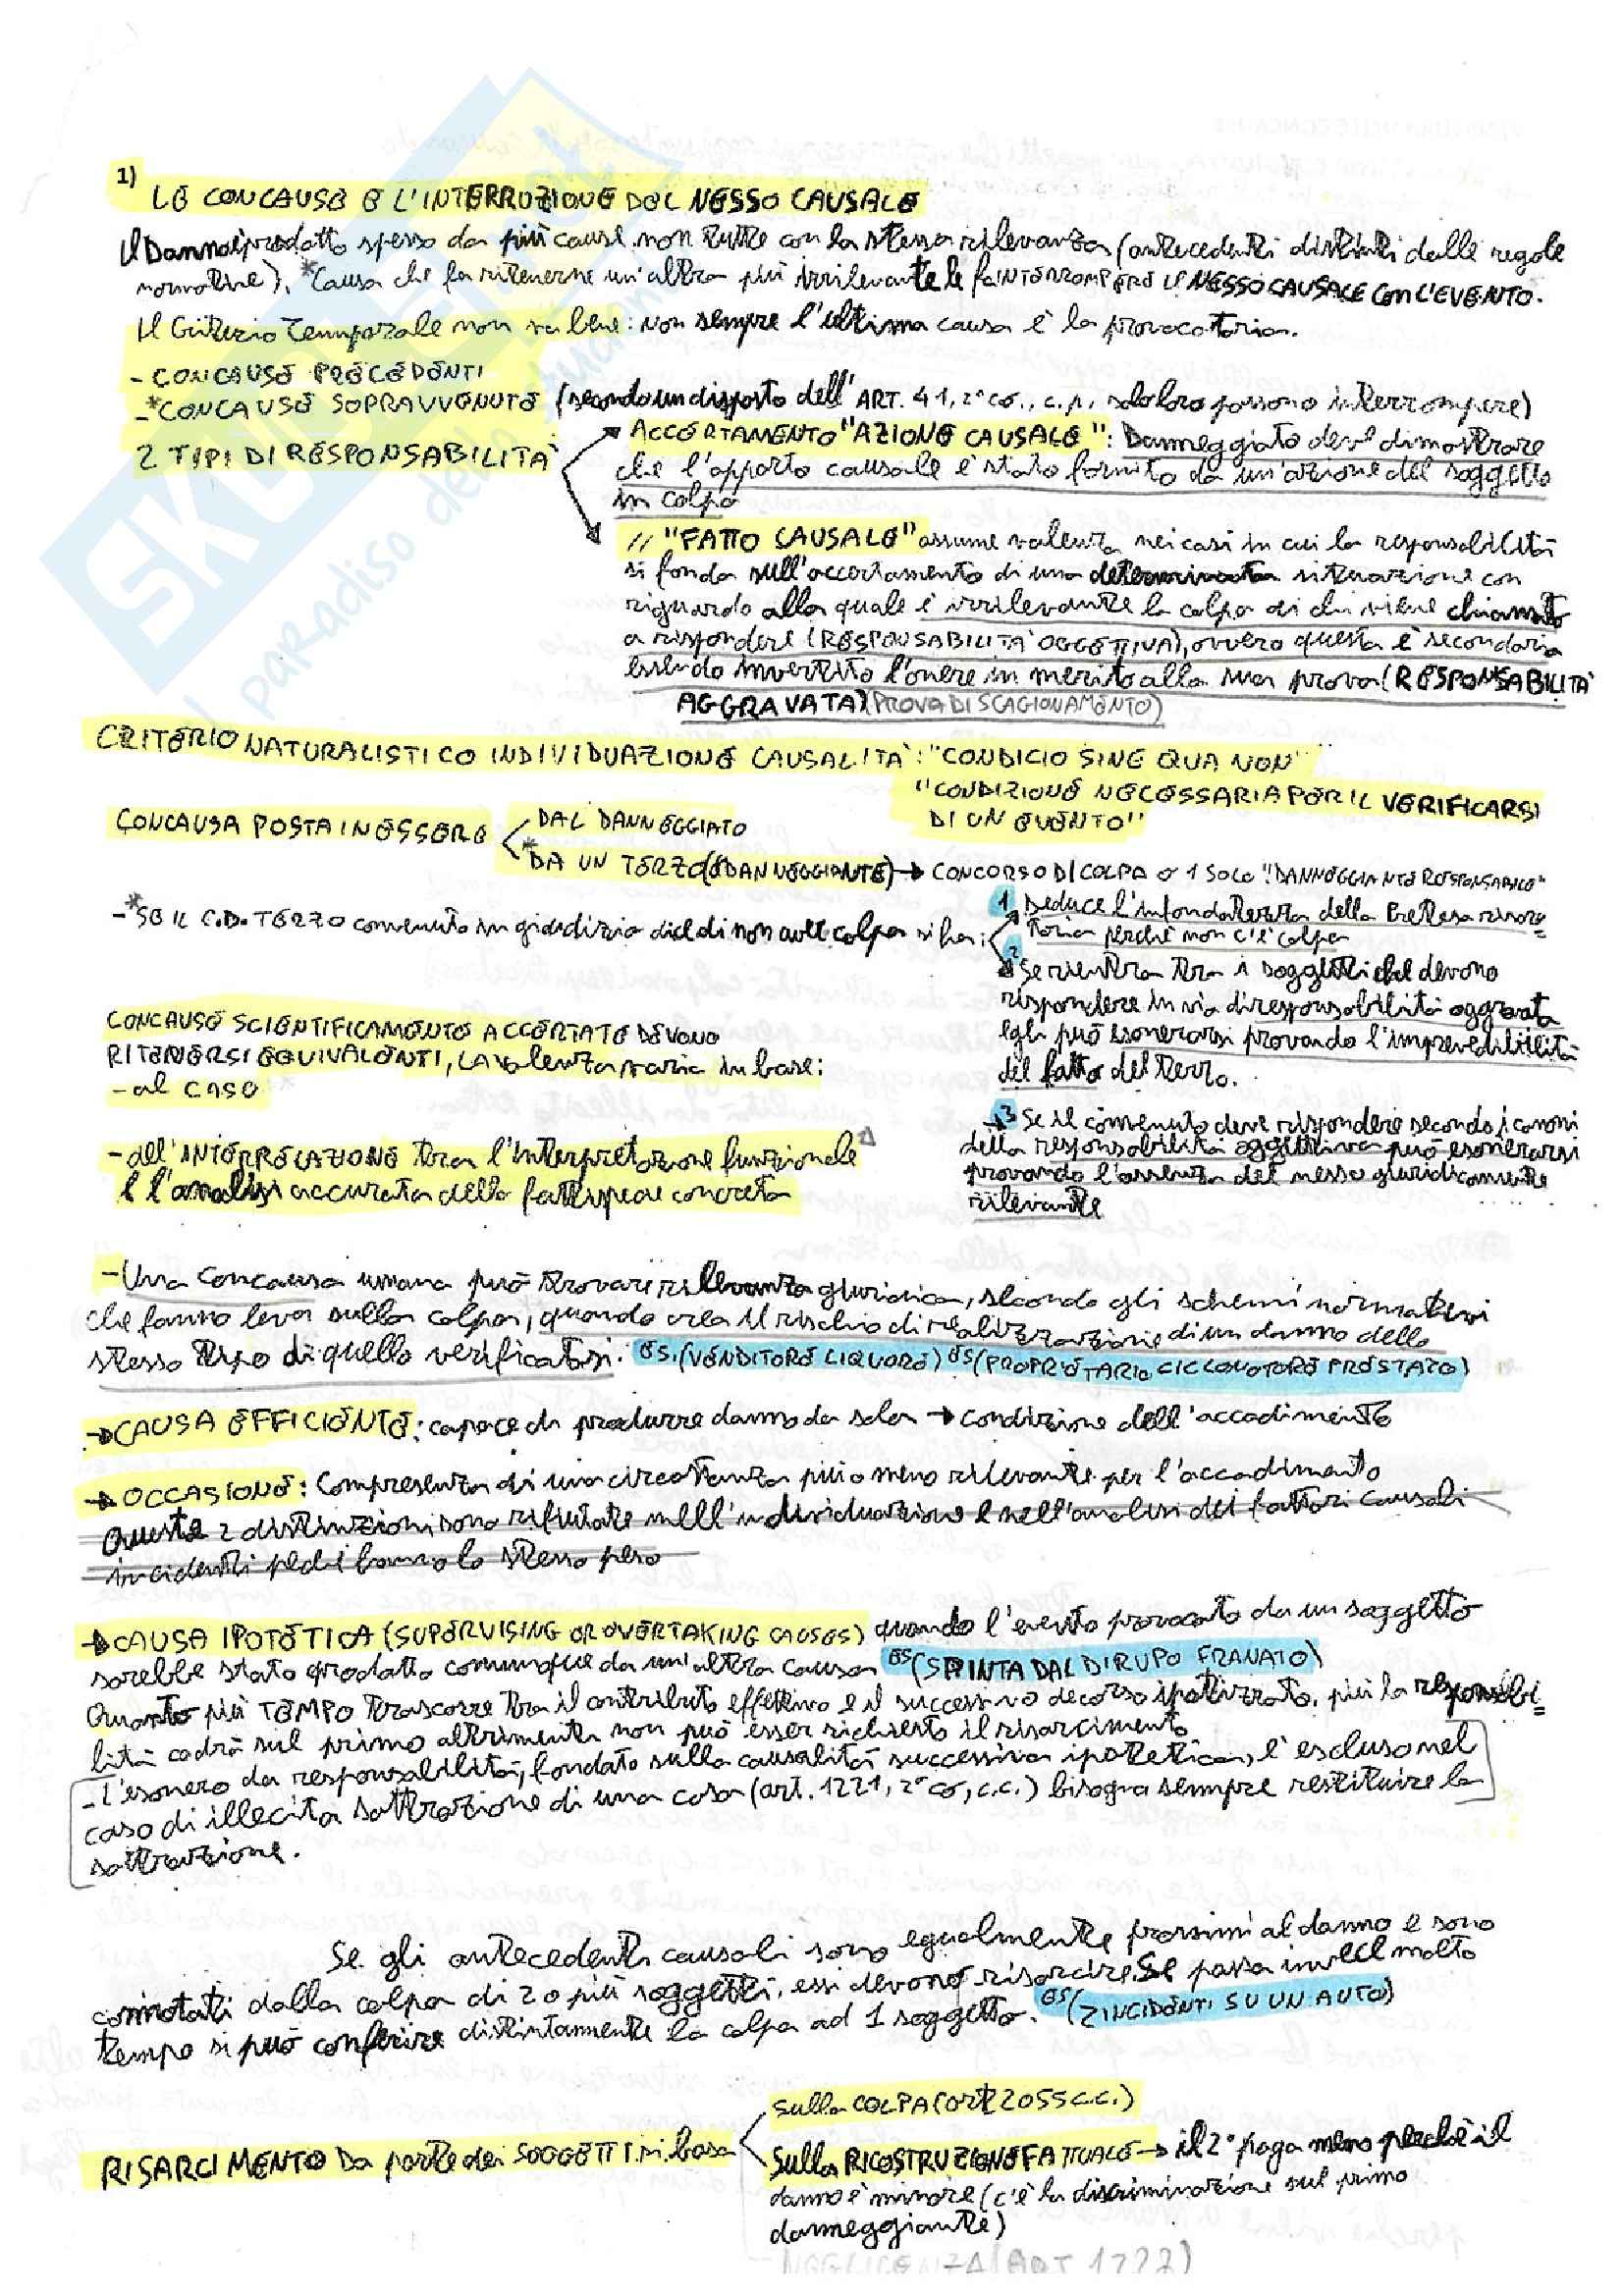 1)
LE CONCAUSE E L'INTERRUZIONE DEL NESSO CAUSALE
Il Danno è prodotto spesso da più cause, non tutte con la stessa rilevanza (antecedenti distinti dalle regole
normative). *Causa che fa ritenerne un'altra più irrilevante le fa INTERROMPERE il NESSO CAUSALE CON L'EVENTO.
Il Criterio Temporale non va bene: non sempre l'ultima causa è la provocatoria.
- CONCAUSE PRECEDENTI
-*CONCAUSE SOPRAVVENUTE (secondo un disposto dell'ART. 41, 2° co., c.p., solo loro possono interrompere)
2 TIPI DI RESPONSABILITÀ
ACCERTAMENTO "AZIONE CAUSALE": Danneggiato deve dimostrare
che l'apporto causale è stato fornito da un'azione del soggetto
in colpa
// "FATTO CAUSALE" assume valenza nei casi in cui la responsabilità
si fonda sull'accertamento di una determinata situazione con
riguardo alla quale è irrilevante la colpa di chi viene chiamato
a rispondere (RESPONSABILITÀ OGGETTIVA), ovvero questa è secondaria
essendo invertito l'onere in merito alla sua prova (RESPONSABILITÀ
AGGRAVATA) (PROVA DI SCAGIONAMENTO)
CRITERIO NATURALISTICO INDIVIDUAZIONE CAUSALITÀ: "CONDICIO SINE QUA NON"
"CONDIZIONE NECESSARIA PER IL VERIFICARSI
DI UN EVENTO"
CONCAUSA POSTA IN ESSERE
DAL DANNEGGIATO
*DA UN TERZO (E DANNEGGIANTE) → CONCORSO DI COLPA O 1 SOLO "DANNEGGIANTE RESPONSABILE"
-*SE IL C.D. TERZO convenuto in giudizio dice di non aver colpa si ha:
1 Deduce l'infondatezza della Pretesa risarci=
toria perché non c'è colpa
2 Se rientra tra i soggetti che devono
rispondere in via di responsabilità aggravata
egli può esonerarsi provando l'imprevedibilità
del fatto del terzo.
CONCAUSE SCIENTIFICAMENTE ACCERTATE DEVONO
RITENERSI EQUIVALENTI, la valenza varia in base:
- al CASO
→3 Se il convenuto deve rispondere secondo i canoni
della responsabilità oggettiva può esonerarsi
provando l'assenza del nesso giuridicamente
rilevante
- all'INTERRELAZIONE tra l'interpretazione funzionale
e l'analisi accurata della fattispecie concreta
- Una concausa umana può trovare rilevanza giuridica, secondo gli schemi normativi
che fanno leva sulla colpa, quando crea il rischio di realizzazione di un danno dello
stesso tipo di quello verificatosi. ES. (VENDITORE LIQUORE) ES (PROPRIETARIO CICLOMOTORE PRESTATO)
→CAUSA EFFICIENTE: capace di produrre danno da sola → condizione dell'accadimento
→OCCASIONE: Compresenza di una circostanza più o meno rilevante per l'accadimento
Queste 2 distinzioni sono rifiutate nell'individuazione e nell'analisi dei fattori causali
incidenti perché hanno lo stesso peso
→CAUSA IPOTETICA (SUPERVISING OR OVERTAKING CAUSES) quando l'evento provocato da un soggetto
sarebbe stato prodotto comunque da un'altra causa ES (SPINTA DAL DIRUPO FRANATO)
Quanto più TEMPO trascorre tra il contributo effettivo e il successivo decorso ipotizzato, più la responsabi=
lità cadrà sul primo altrimenti non può esser richiesto il risarcimento
- L'esonero da responsabilità, fondato sulla causalità successiva ipotetica, è escluso nel
caso di illecita sottrazione di una cosa (art. 1221, 2° co, c.c.) bisogna sempre restituire la
sottrazione.
Se gli antecedenti causali sono egualmente prossimi al danno e sono
connotati dalla colpa di 2 o più soggetti, essi devono risarcire. Se passa invece molto
tempo si può conferire distintamente la colpa ad 1 soggetto. ES (2 INCIDENTI SU UN AUTO)
RISARCIMENTO Da parte dei SOGGETTI si basa
sulla COLPA (art 2055 c.c.)
sulla RICOSTRUZIONE FATTUALE → il 2° paga meno perché il
danno è minore (c'è la discriminazione sul primo
danneggiante)
SKUOLA.net
il paradiso dello studente